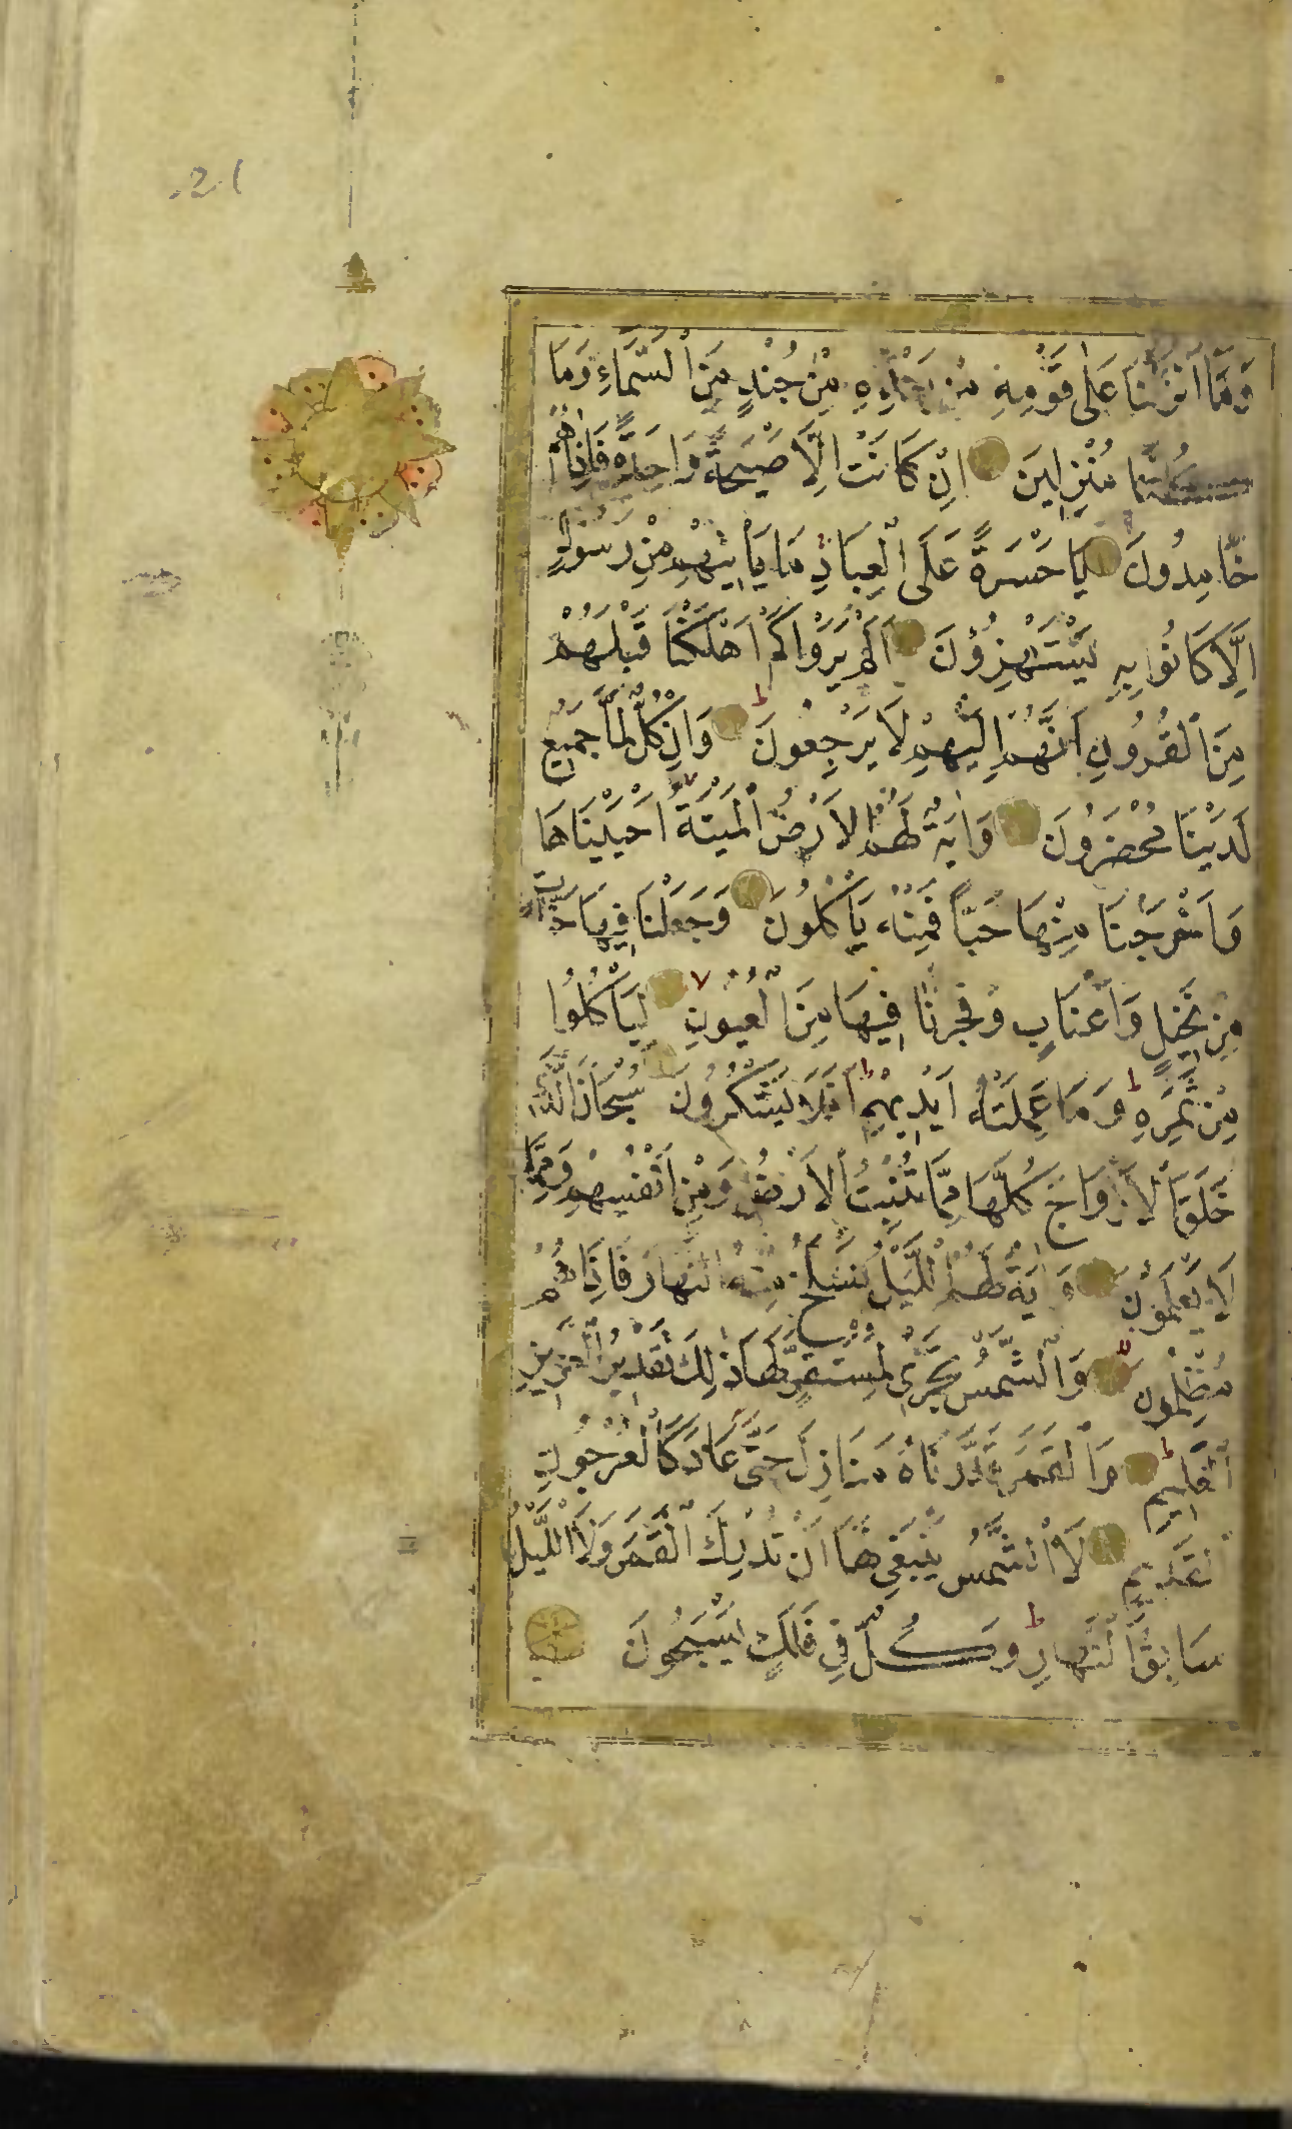 وَمَا اَنْزَلْنَا عَلٰى قَوْمِهِ مِنْ بَعْدِهِ مِنْ جُنْدٍ مِنَ السَّمَاءِ وَمَا
كُنَّا مُنْزِلِينَ اِنْ كَانَتْ اِلَّا صَيْحَةً وَاحِدَةً فَاِذَا هُمْ
خَامِدُونَ يَا حَسْرَةً عَلَى الْعِبَادِ مَا يَأْتِيهِمْ مِنْ رَسُولٍ
اِلَّا كَانُوا بِهِ يَسْتَهْزِؤُنَ اَلَمْ يَرَوْا كَمْ اَهْلَكْنَا قَبْلَهُمْ
مِنَ الْقُرُونِ اَنَّهُمْ اِلَيْهِمْ لَا يَرْجِعُونَ ط وَاِنْ كُلٌّ لَمَّا جَمِيعٌ
لَدَيْنَا مُحْضَرُونَ وَاٰيَةٌ لَهُمُ الْاَرْضُ الْمَيْتَةُ اَحْيَيْنَاهَا
وَاَخْرَجْنَا مِنْهَا حَبًّا فَمِنْهُ يَأْكُلُونَ وَجَعَلْنَا فِيهَا جَنَّاتٍ
مِنْ نَخِيلٍ وَاَعْنَابٍ وَفَجَّرْنَا فِيهَا مِنَ الْعُيُونِ لا لِيَأْكُلُوا
مِنْ ثَمَرِهِ ط وَمَا عَمِلَتْهُ اَيْدِيهِمْ ط اَفَلَا يَشْكُرُونَ سُبْحَانَ الَّذِي
خَلَقَ الْاَزْوَاجَ كُلَّهَا مِمَّا تُنْبِتُ الْاَرْضُ وَمِنْ اَنْفُسِهِمْ وَمِمَّا
لَا يَعْلَمُونَ وَاٰيَةٌ لَهُمُ اللَّيْلُ نَسْلَخُ مِنْهُ النَّهَارَ فَاِذَا هُمْ
مُظْلِمُونَ لا وَالشَّمْسُ تَجْرِي لِمُسْتَقَرٍّ لَهَا ذٰلِكَ تَقْدِيرُ الْعَزِيزِ
الْعَلِيمِ ط وَالْقَمَرَ قَدَّرْنَاهُ مَنَازِلَ حَتَّى عَادَ كَالْعُرْجُونِ
الْقَدِيمِ لَا الشَّمْسُ يَنْبَغِي لَهَا اَنْ تُدْرِكَ الْقَمَرَ وَلَا اللَّيْلُ
سَابِقُ النَّهَارِ ط وَكُلٌّ فِي فَلَكٍ يَسْبَحُونَ